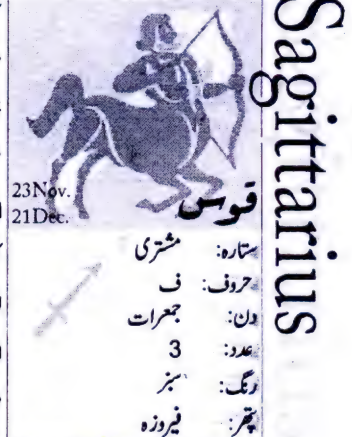 Sagittarius
23Nov.
21Dec.
قوس
ستارہ: مشتری
حروف: ف
دن: جمعرات
عدد: 3
رنگ: سبز
پتھر: فیروزہ